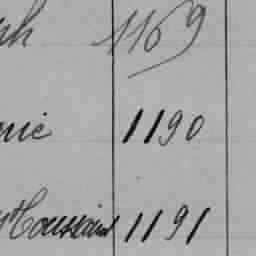 ph 1169
nie 1190
Toussaint 1191